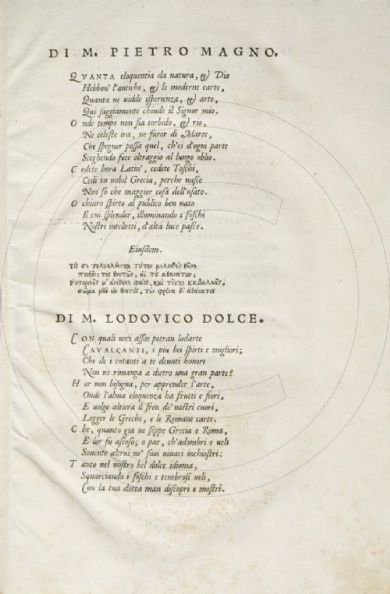 DI M. PIETRO MAGNO.
QVANTA eloquentia da natura, & Dio
Hebbon' l'antiche, & le moderne carte,
Quanta ne uidde isperienza, & arte,
Qui saggiamente chiude il Signor mio.
Onde tempo non sia torbido, & rio,
Ne celeste ira, ne furor di Marte,
Che spegner possa quel, ch'ei d'ogni parte
Scegliendo fece oltraggio al lungo oblio.
Cedete hora Latini, cedete Toschi,
Cedi tu nobil Grecia, perche nasce
Non so che maggior cosa dell'usato.
O chiaro spirto al publico ben nato
Il cui splendor, illuminando i foschi
Nostri intelletti, d'alta luce pasce.
Eiusdem.
DI M. LODOVICO DOLCE.
CON quali uoci assai potran lodarte
CAVALCANTE, i piu bei spirti e migliori;
Che de i cotanti a te deuuti honori
Non ne rimanga a dietro una gran parte?
Hor non bisogna, per apprender l'arte,
Onde l'alma eloquenza ha frutti e fiori,
E uolge altiera il fren de' nostri cuori,
Legger le Greche, e le Romane carte.
Che, quanto gia ne seppe Grecia e Roma,
E lor fu ascoso; o par, ch'adombri e ueli
Souente altrui ne' suoi uiuaci inchiostri;
Tanto nel nostro bel dolce idioma,
Squarciando i foschi e tenebrosi ueli,
Con la tua dotta man discopri e mostri.